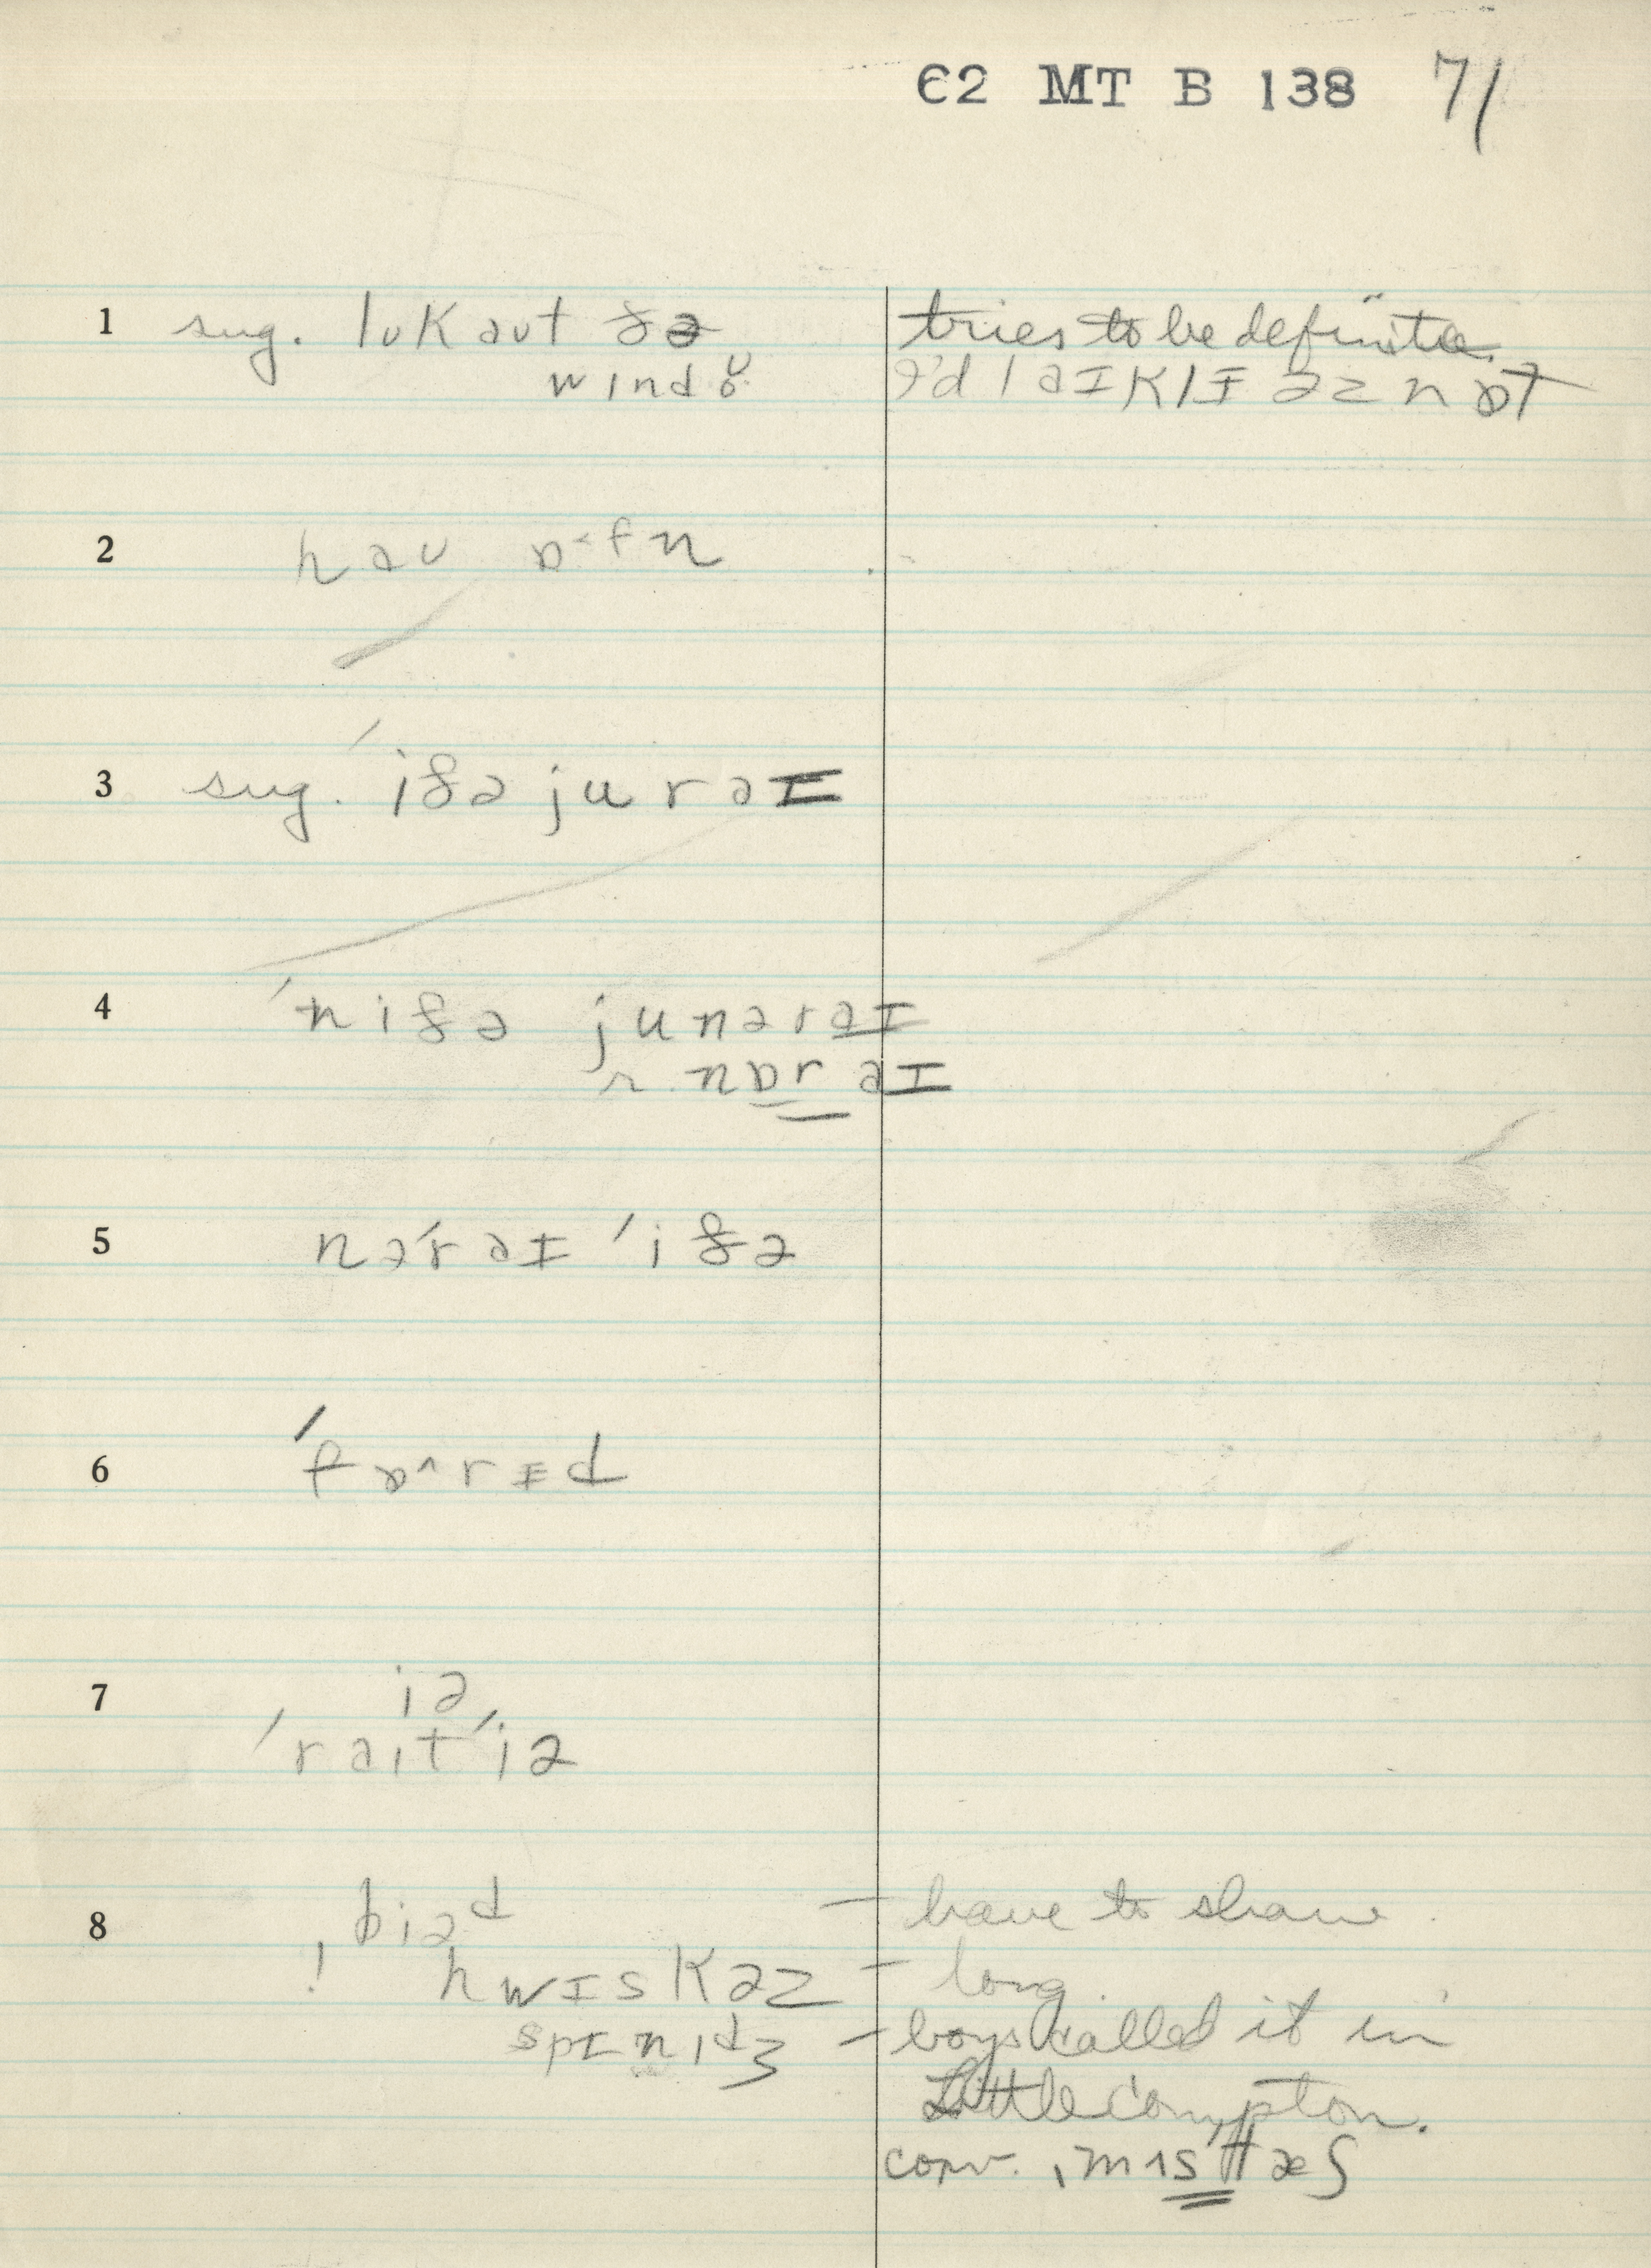 C2 MT B 138 71
1 sug. lʊk aʊt ðə tries to be definite.
wɪndoʊ I'd laɪklɪ əz nɒt
2 haʊ ɒ˂fn
3 sug. ˈiðə ju r aɪ
4 ˈniðə ju nər aɪ
r nɒr aɪ
5 nəˈr aɪ ˈiðə
6 ˈfɒ^rɪd
7 iə
ˈraɪt ˈiə
8 biəd — have to shave.
! hwɪskəz — long
spɪnɪdʒ — boys called it in
Little Compton.
conv. ˌmʌsˈtæʃ